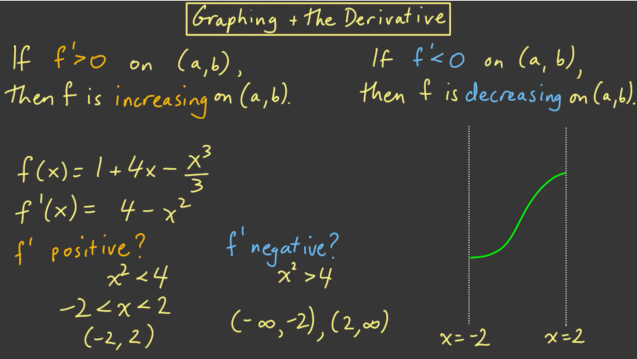 Graphing + the Derivative
If f'>0 on (a,b),
then f is increasing on (a,b).
If f'<0 on (a,b),
then f is decreasing on (a,b).
f(x) = 1 + 4x − x³/3
f'(x) = 4 − x²
f' positive?
x² < 4
−2 < x < 2
(−2, 2)
f' negative?
x² > 4
(−∞, −2), (2, ∞)
x = −2
x = 2